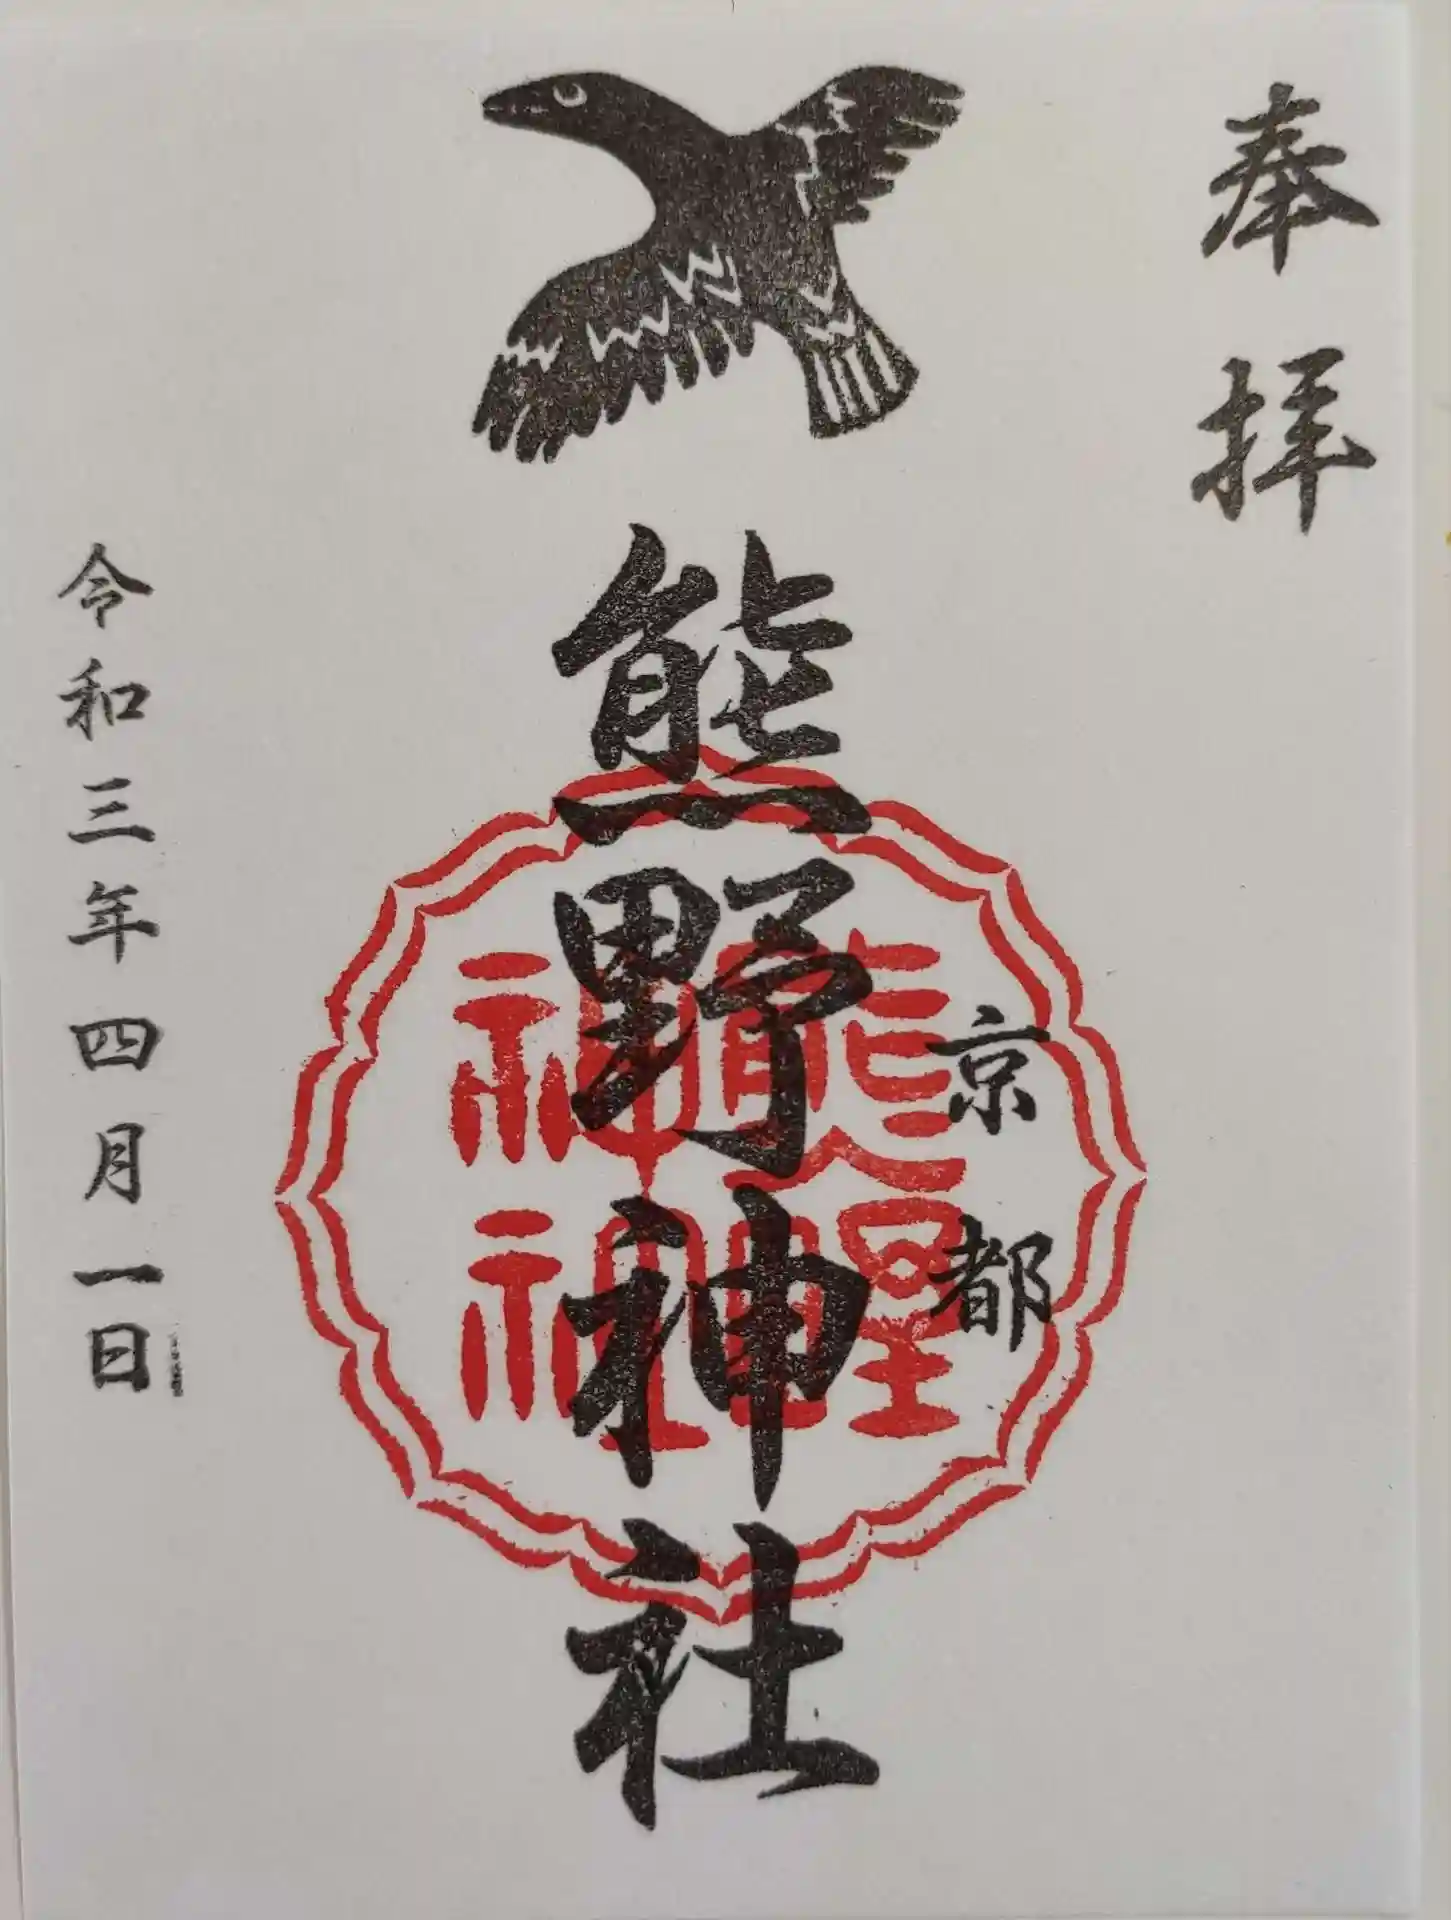 奉拝
京都
熊野神社
熊野神社
令和三年四月一日